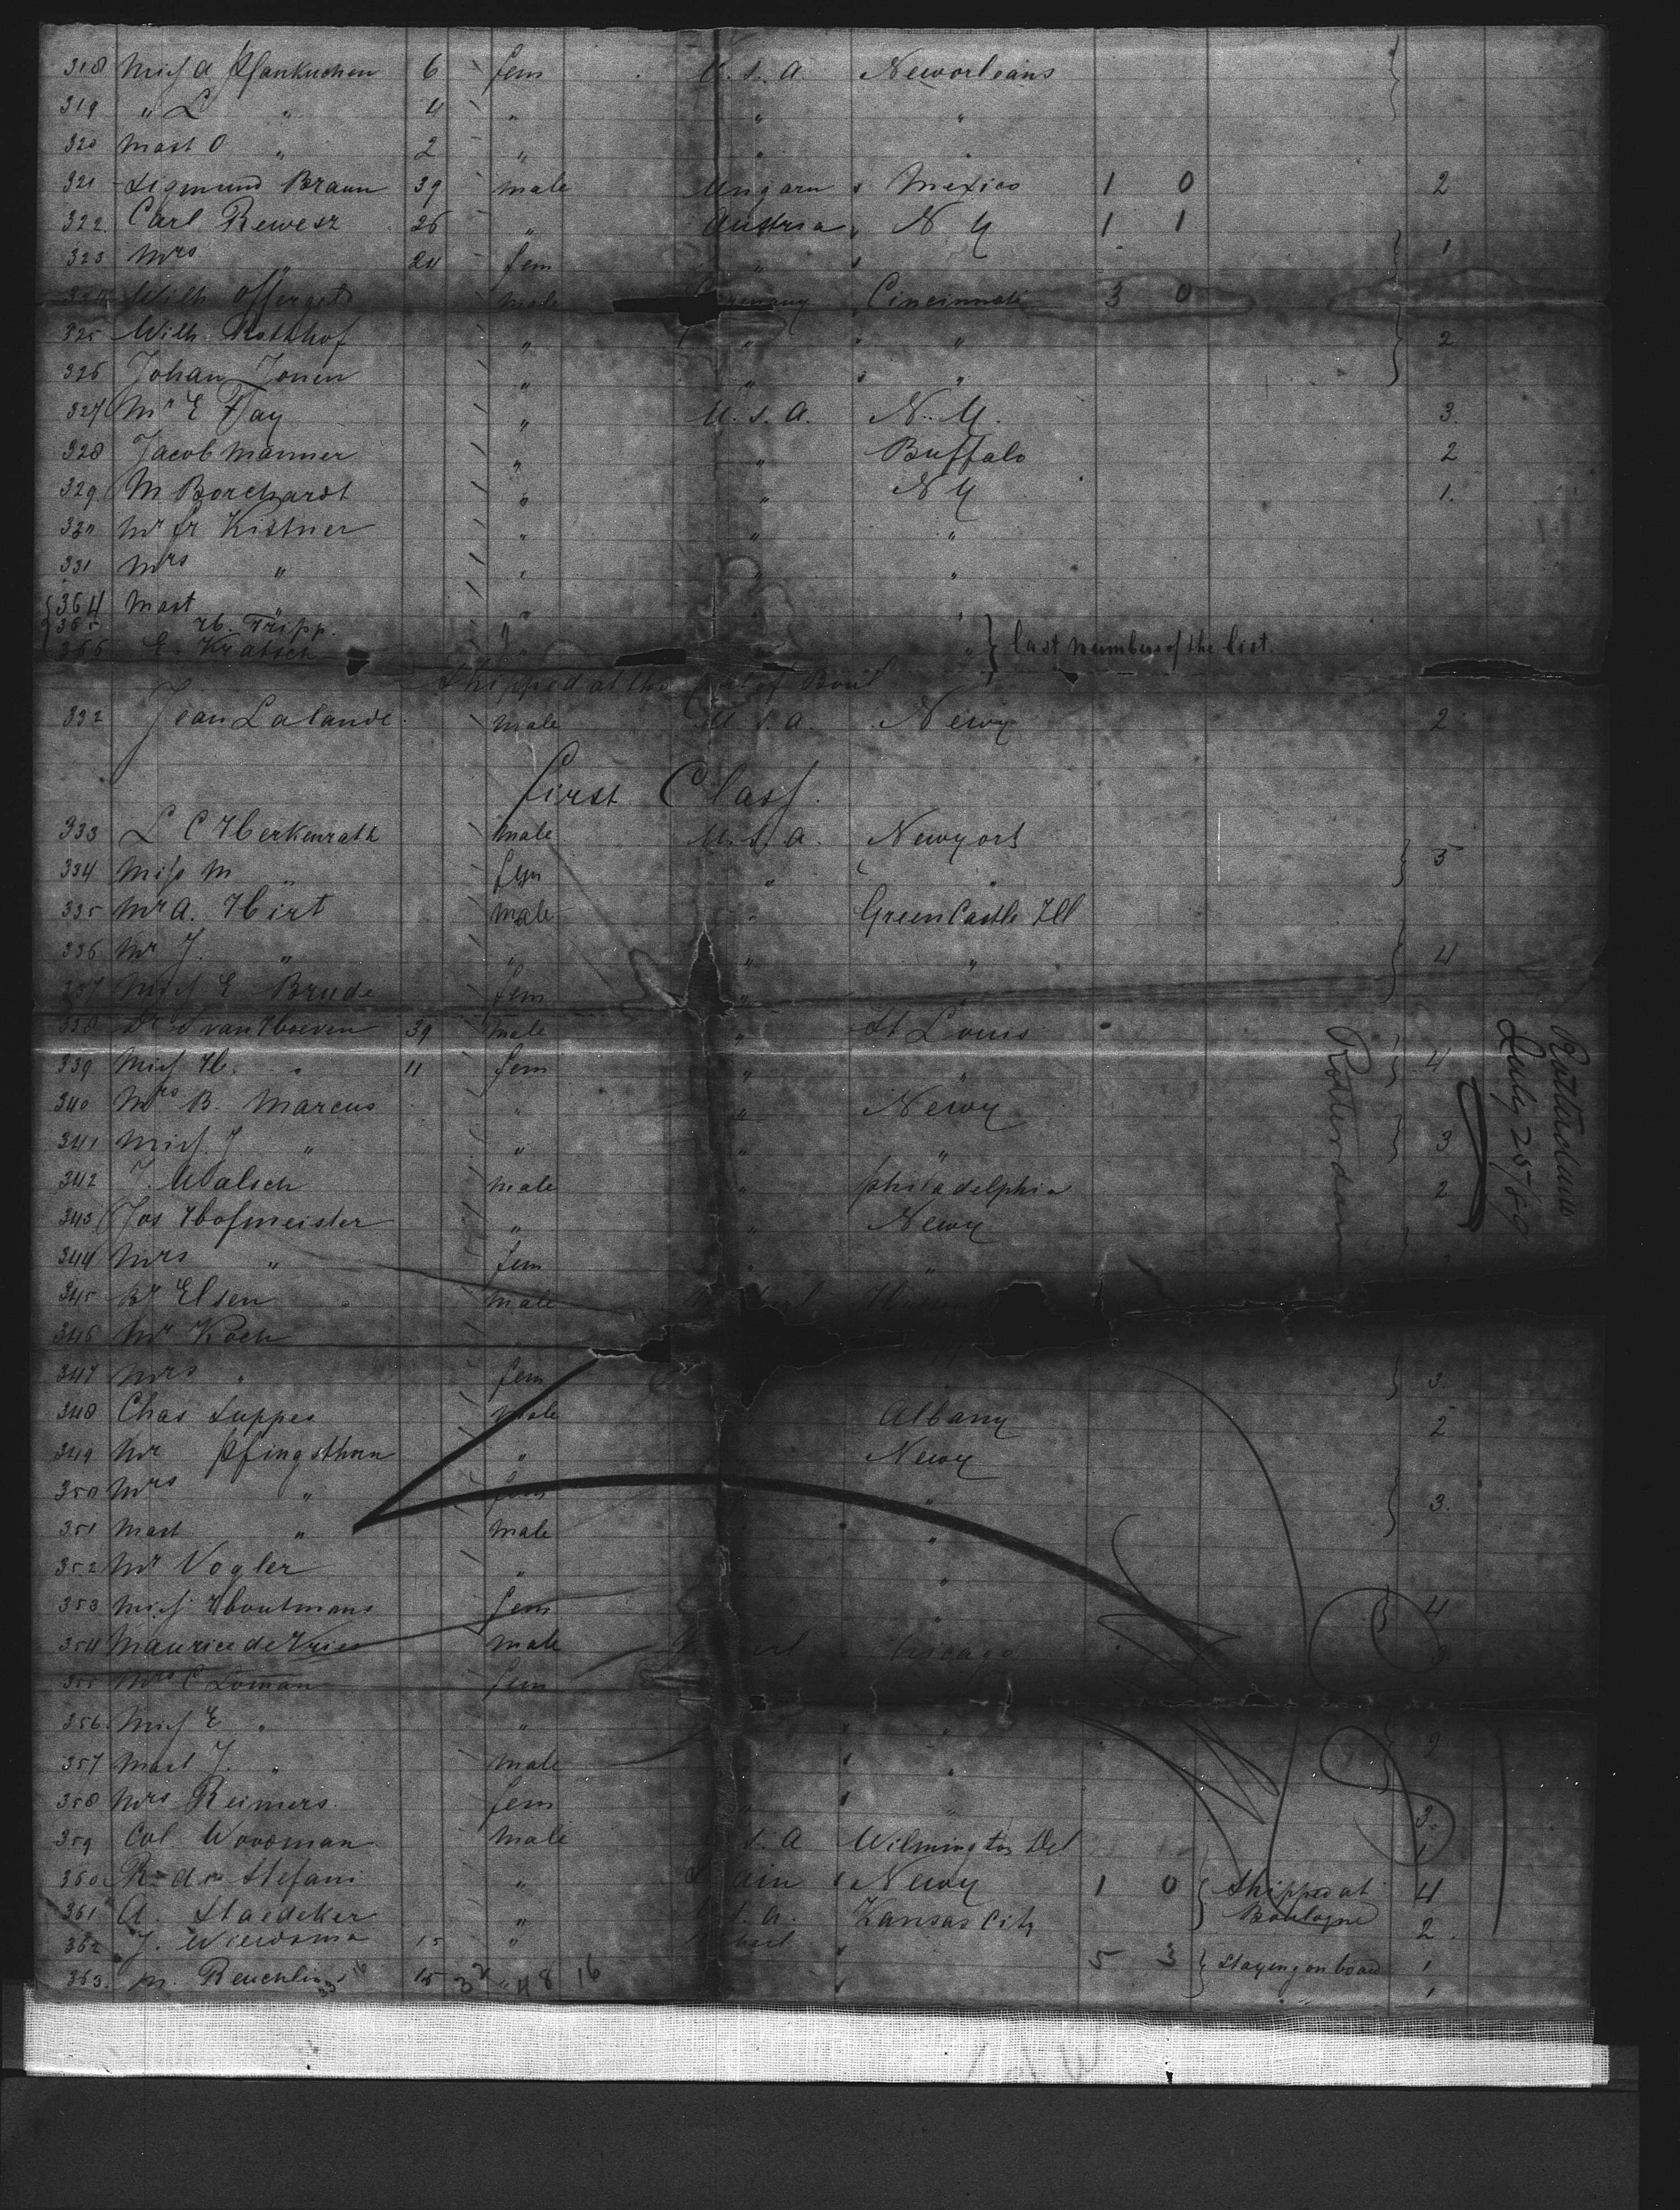 318 Miss A Pfankuchen 6 fem U.S.A. Neworleans
319 " L " 4 " " "
320 Mast O " 2 " " "
321 Sigmund Braun 39 male Ungarn Mexico 1 0 2
322 Carl Rewesz 26 " Austria N Y 1 1
323 Mrs " 24 fem " 1
324 Wilh Offergelt male Germany Cincinnati 3 0
325 Wilh. Rotthof " " " 2
326 Johan Jonen " " "
327 Mr E Fay " U.S.A. N.Y. 3.
328 Jacob Manner " " Buffalo 2
329 M Borchardt " " N Y 1.
330 Mr fr Kistner " " "
331 Mrs " " " "
364 Mast " " "
365 H. Tripp.
366 E. Kratsch " " last numbers of the list.
Shipped at the Port of Boul
332 Jean Lalande male U.S.A. Newy 2
First Class.
333 L C Herkenrath male U.S.A. Newyork
334 Miss M " fem " " 5
335 Mr A. Hirt male " Green Castle Ill
336 Mr J. " " " " 4
337 Miss E Brude fem "
338 Dr J van Hoeven 39 male " St Louis
339 Miss H. " 11 fem " " 4
340 Mrs B. Marcus " " Newy
341 Miss J " " " " 3
342 J. Walsch male " philadelphia 2
343 Jos Hofmeister " " Newy
344 Mrs " fem " "
345 Mr Elsen male
346 Mr Koch
347 Mrs " fem 3
348 Chas Luppes male Albany 2
349 Mr Pfingsthorn " Newy
350 Mrs " fem " 3.
351 Mast " male "
352 Mr Vogler " "
353 Miss Houtmans fem " 4
354 Maurice de Vries male Chicago
355 Mrs C Loman fem
356 Miss E " " "
357 Mast J. " male "
358 Mrs Reimers. fem " 3.
359 Col Woodman male S.A Wilmington Del 1
360 R de Stefani " Newy 1 0 Shipped at 4
361 A. Staedeker " S.A. Kansas City Boulogne 2.
362 J. Wierdsma 15 " 5 3 Staying on board 1
363. M. Reuchlin 15 " 1
32 48 16
Rotterdam
Rotterdam
July 25/89